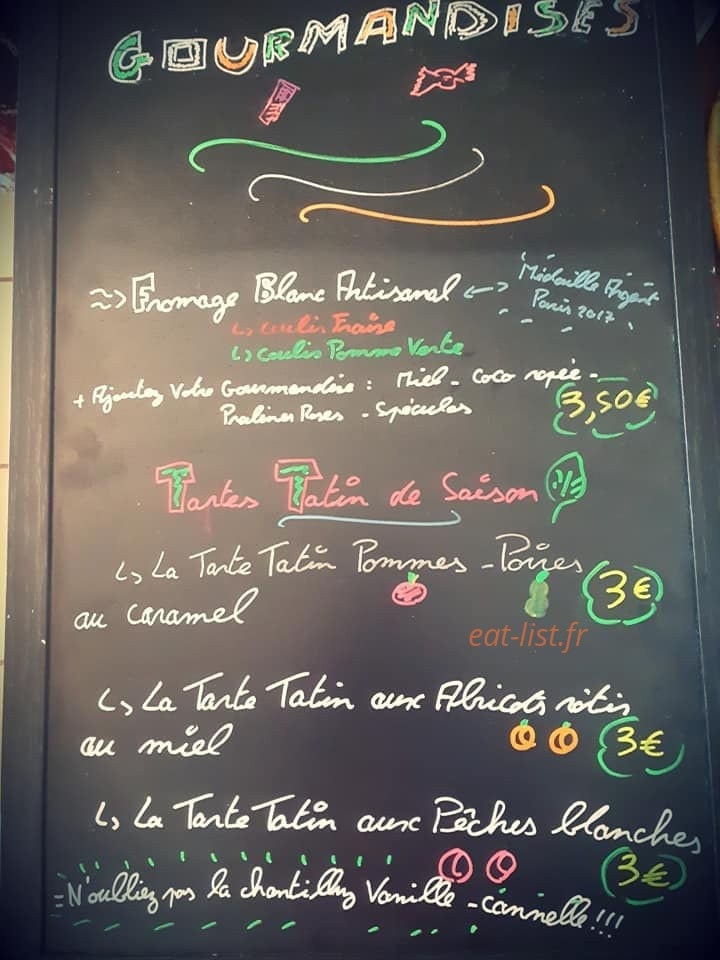 GOURMANDISES
=> Fromage Blanc Artisanal <-> Médaille Argent
Paris 2017
↳ Coulis Fraise
↳ Coulis Pomme Verte
+ Ajoutez Votre Gourmandise : Miel - Coco rapée -
Pralines Roses - Spéculos
3,50€
Tartes Tatin de Saison
↳ La Tarte Tatin Pommes - Poires
au caramel
3€
eat-list.fr
↳ La Tarte Tatin aux Abricots rôtis
au miel
3€
↳ La Tarte Tatin aux Pêches blanches
3€
N'oubliez pas la chantilly Vanille - cannelle !!!